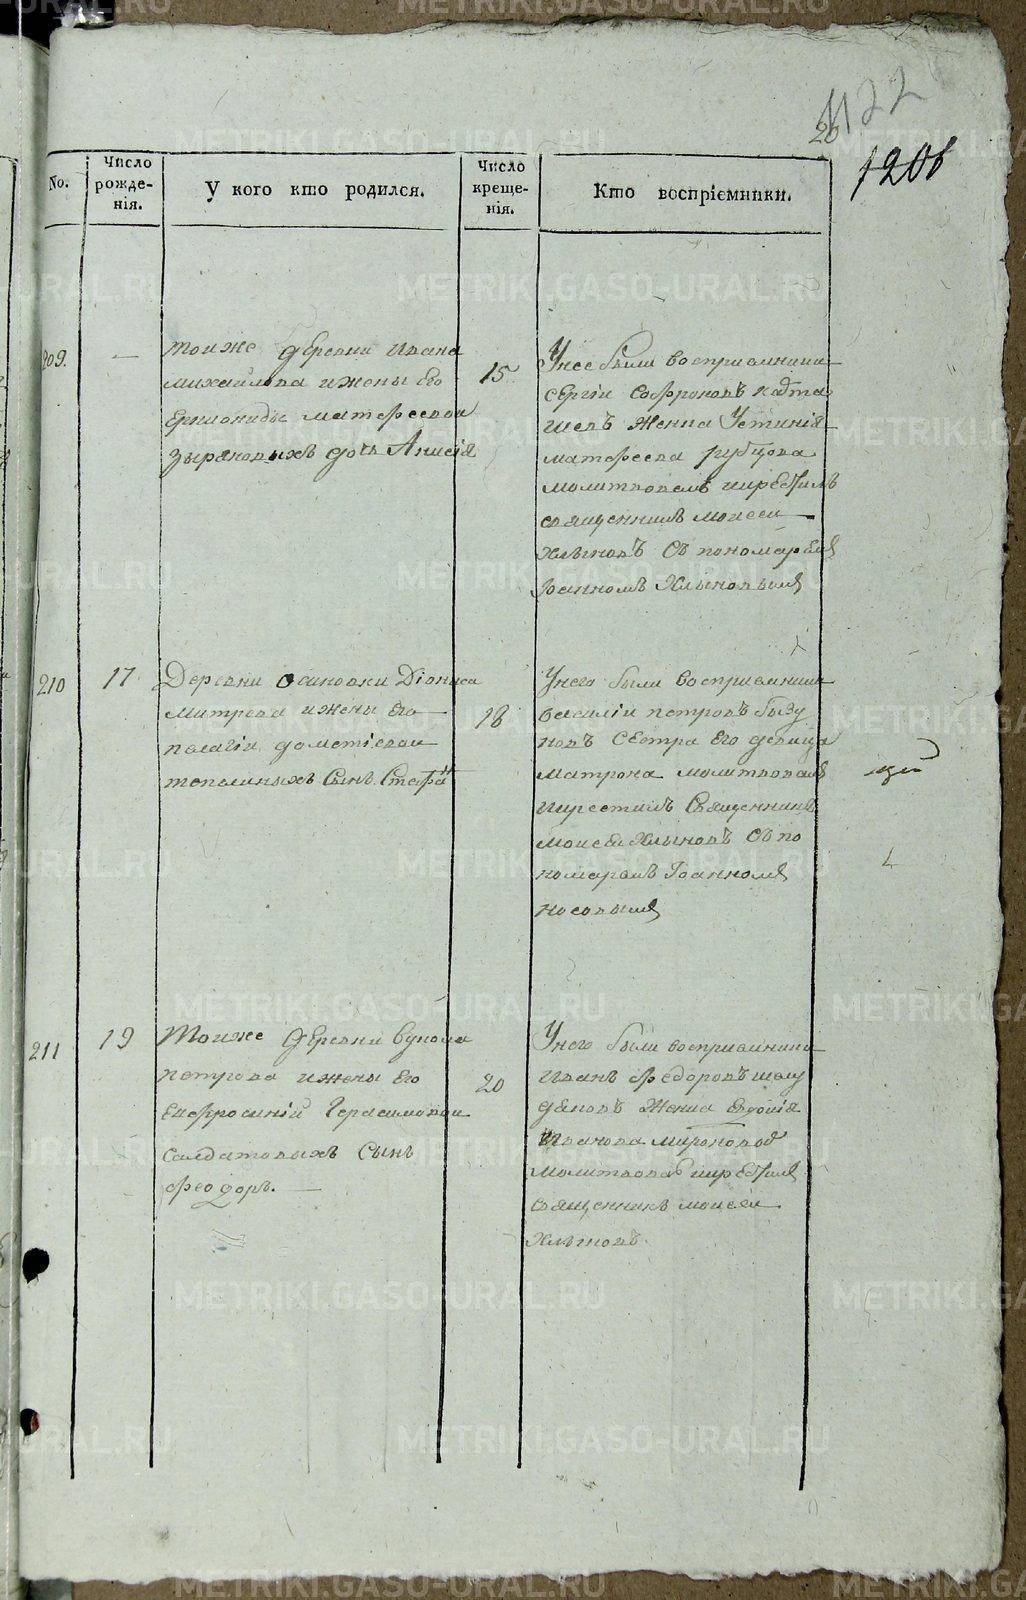 1122
20
1206
No.
Число рожде-нія.
У кого кто родился.
Число креще-нія.
Кто воспріємники.
209.
—
тоиже деревни ивана
михаилова ижены Его
матфеевои
зыряновыхъ дочь Анисія
15
Унее были восприемники
сергіи софроновъ
женка Устинія
матфеева рубцова
молитвовалъ икрестилъ
священникъ моисеи
хлыновъ съ пономаремъ
Іоанномъ Хлыновымъ
210
17
Деревни осиновки Діониса
митрева ижены Его
пелагіи дометіевои
топалныхъ Сынъ Стефанъ
18
Унего были восприемники
василіи петровъ бызу
новъ сестра его девица
матрона молитвовалъ
икрестилъ Священникъ
моисеи хлыновъ съ по
номаремъ Іоанномъ
носовымъ
211
19
Тоиже деревни вукола
петрова ижены Его
Евфросиніи Герасимовои
Салдатовыхъ Сынъ
феодоръ. —
20
Унего были восприемники
Иванъ Федоровъ шелу
дяковъ женка Евдокія
иванова миронова
молитвовалъ икрестилъ
священникъ моисеи
хлыновъ.
METRIKI.GASO-URAL.RU